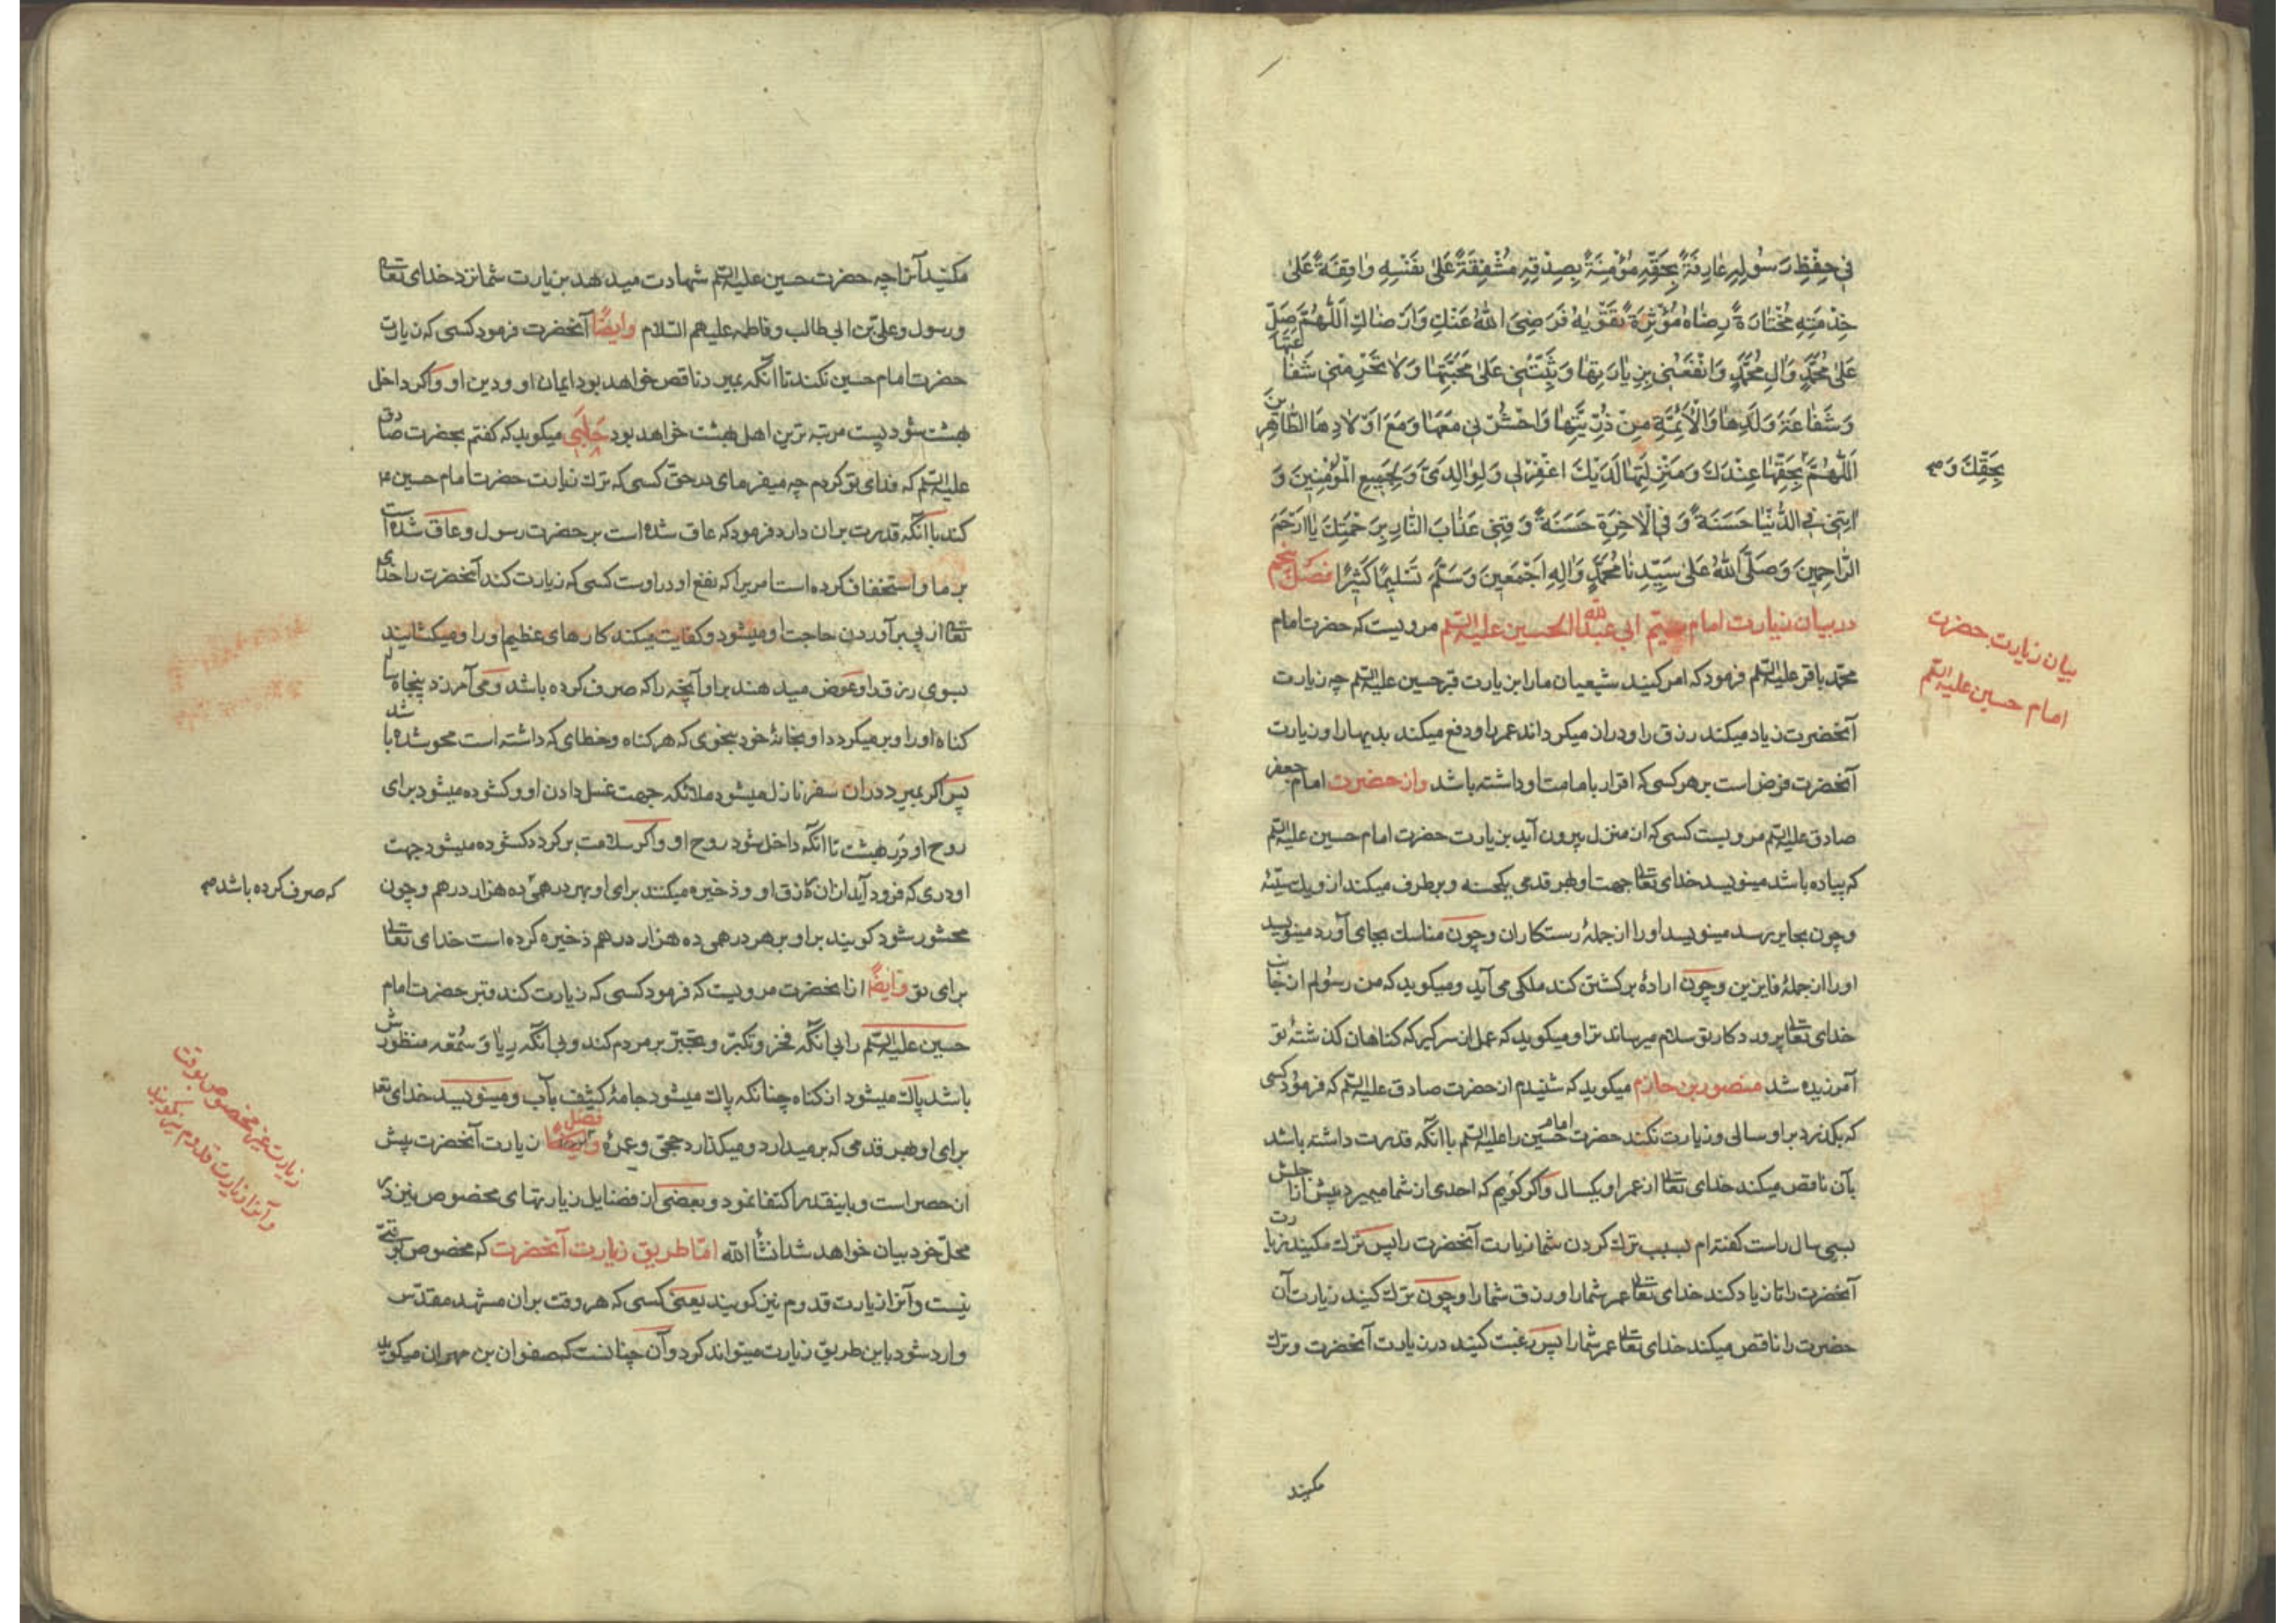 فِي حِفْظِ رَسُولِهِ عَارِفَةً بِحَقِّهِ مُؤْمِنَةً بِصِدْقِهِ مُشْفِقَةً عَلَىٰ نَفْسِهِ وَاقِفَةً عَلَىٰ
خِدْمَتِهِ مُخْتَارَةً رِضَاهُ مُؤْثِرَةً فَرَضِيَ اللهُ عَنْكِ وَأَرْضَاكِ اَللّٰهُمَّ صَلِّ
عَلىٰ مُحَمَّدٍ وَآلِ مُحَمَّدٍ وَانْفَعْنِي بِزِيَارَتِهَا وَثَبِّتْنِي عَلىٰ مَحَبَّتِهَا وَلَا تَحْرِمْنِي شَفَا عَتَهَا
وَشَفَاعَةَ وَلَدِهَا وَالْأَئِمَّةِ مِنْ ذُرِّيَّتِهَا وَاحْشُرْنِي مَعَهَا وَمَعَ اَوْلَادِهَا الطَّاهِرِينَ
اَللّٰهُمَّ بِحَقِّهَا عِنْدَكَ وَمَنْزِلَتِهَا لَدَيْكَ اغْفِرْلِي وَلِوَالِدَيَّ وَلِجَمِيعِ الْمُؤْمِنِينَ وَ
بِحَقِّكَ وَ
آتِنِي فِي الدُّنْيَا حَسَنَةً وَفِي الْآخِرَةِ حَسَنَةً وَقِنِي عَذَابَ النَّارِ بِرَحْمَتِكَ يَا اَرْحَمَ
الرَّاحِمِينَ وَصَلَّى اللهُ عَلىٰ سَيِّدِنَا مُحَمَّدٍ وَآلِهِ اَجْمَعِينَ وَسَلَّمَ تَسْلِيمًا كَثِيرًا فصل پنجم
در بیان زیارت امام ابی عبدالله الحسین علیه السلم مرویست که حضرت امام
بیان زیارت حضرت
امام حسین علیه السلم
محمد باقر علیه السلم فرمود که امر کنید شیعیان ما را بزیارت قبر حسین علیه السلم چه زیارت
آنحضرت زیاد میکند رزق را و دراز میکرداند عمر را و دفع میکند بدیها را و زیارت
آنحضرت فرض است بر هر کسی که اقرار بامامت او داشته باشد واز حضرت امام جعفر
صادق علیه السلم مرویست کسی که از منزل بیرون آید بزیارت حضرت امام حسین علیه السلم
که پیاده باشد مینویسد خدای تعالی جهت او بهر قدمی یکحسنه و برطرف میکند از و یك سیئه
و چون بحایر برسد مینویسد او را از جملهٔ رستکاران و چون مناسك بجای آورد مینویسد
او را از جملهٔ فایزین و چون ارادهٔ برکشتن کند ملکی می آید و میکوید که من رسولم از جانب
خدای تعالی پروردکار تو سلام میرساند ترا و میکوید که عمل از سر کیر که کناهان کذشتهٔ تو
آمرزیده شد منصور بن حازم میکوید که شنیدم از حضرت صادق علیه السلم که فرمود کسی
که بکذرد بر او سالی و زیارت نکند حضرت امام حسین را علیه السلم با آنکه قدرت داشته باشد
بآن ناقص میکند خدای تعالی از عمر او یکسال و اکر کویم که احدی از شما میمیرد پیش از اجلش
بسی سال راست کفته ام بسبب ترك کردن شما زیارت آنحضرت را پس ترك مکنید زیارت
آنحضرت را تا زیاد کند خدای تعالی عمر شما را و رزق شما را و چون ترك کنید زیارت آن
حضرت را ناقص میکند خدای تعالی عمر شما را پس رغبت کنید در زیارت آنحضرت و ترك
مکنید
مکنید آنرا چه حضرت حسین علیه السلم شهادت میدهد بزیارت شما نزد خدای تعالی
و رسول و علی بن ابی طالب و فاطمه علیهم السلام وایضًا آنحضرت فرمود کسی که زیارت
حضرت امام حسین نکند تا آنکه بمیرد ناقص خواهد بود ایمان او و دین او و اکر داخل
بهشت شود پست مرتبه ترین اهل بهشت خواهد بود حلبی میکوید که کفتم بحضرت صادق
علیه السلم که فدای تو کردم چه میفرمای در حق کسی که ترك زیارت حضرت امام حسین
کند با آنکه قدرت بر آن دارد فرمود که عاق شده است بر حضرت رسول و عاق شده است
بر ما و استخفاف کرده است امریرا که نفع او در اوست کسی که زیارت کند آنحضرت را خدای
تعالی از پی برآوردن حاجت او میشود و کفایت میکند کارهای عظیم او را و میکشایند
بسوی رزق را و عوض میدهند بر او آنچه را که صرف کرده باشد و می آمرزد پنجاه ساله
کناه او را و برمیکردد او بخانهٔ خود بنحوی که هر کناه و خطای که داشته است محو شده باشد
پس اکر بمیرد در آن سفر نازل میشود ملائکه جهت غسل دادن او و کشوده میشود برای
روح او در بهشت تا آنکه داخل شود روح او و اکر سلامت برکردد کشوده میشود جهت
او دری که فرود آید از آن رزق او و ذخیره میکنند برای او بهر درهمی ده هزار درهم و چون
که صرف کرده باشد
محشور شود کویند بر او بر هر درهمی ده هزار درهم ذخیره کرده است خدای تعالی
برای تو وایضًا از آنحضرت مرویست که فرمود کسی که زیارت کند قبر حضرت امام
حسین علیه السلم را بی آنکه فخر و تکبر و تجبر بر مردم کند و بی آنکه ریا و سمعه منظورش
باشد پاك میشود از کناه چنانکه پاك میشود جامهٔ کثیف بآب و مینویسد خدای تعالی
برای او بهر قدمی که بر میدارد و میکذارد حجی و عمرهٔ فضل زیارت آنحضرت پیش
از حصر است و باینقدر اکتفا نمود و بعضی از فضایل زیارتهای مخصوص نیز در
محل خود بیان خواهد شد انشأالله امّا طریق زیارت آنحضرت که مخصوص بوقتی
نیست و آنرا زیارت قدوم نیز کویند یعنی کسی که هر وقت بر آن مشهد مقدس
وارد شود باین طریق زیارت میتواند کرد و آن چنانست که صفوان بن مهران میکوید
زیارت غیر مخصوص بوقت
و آنرا زیارت قدوم نیز کویند